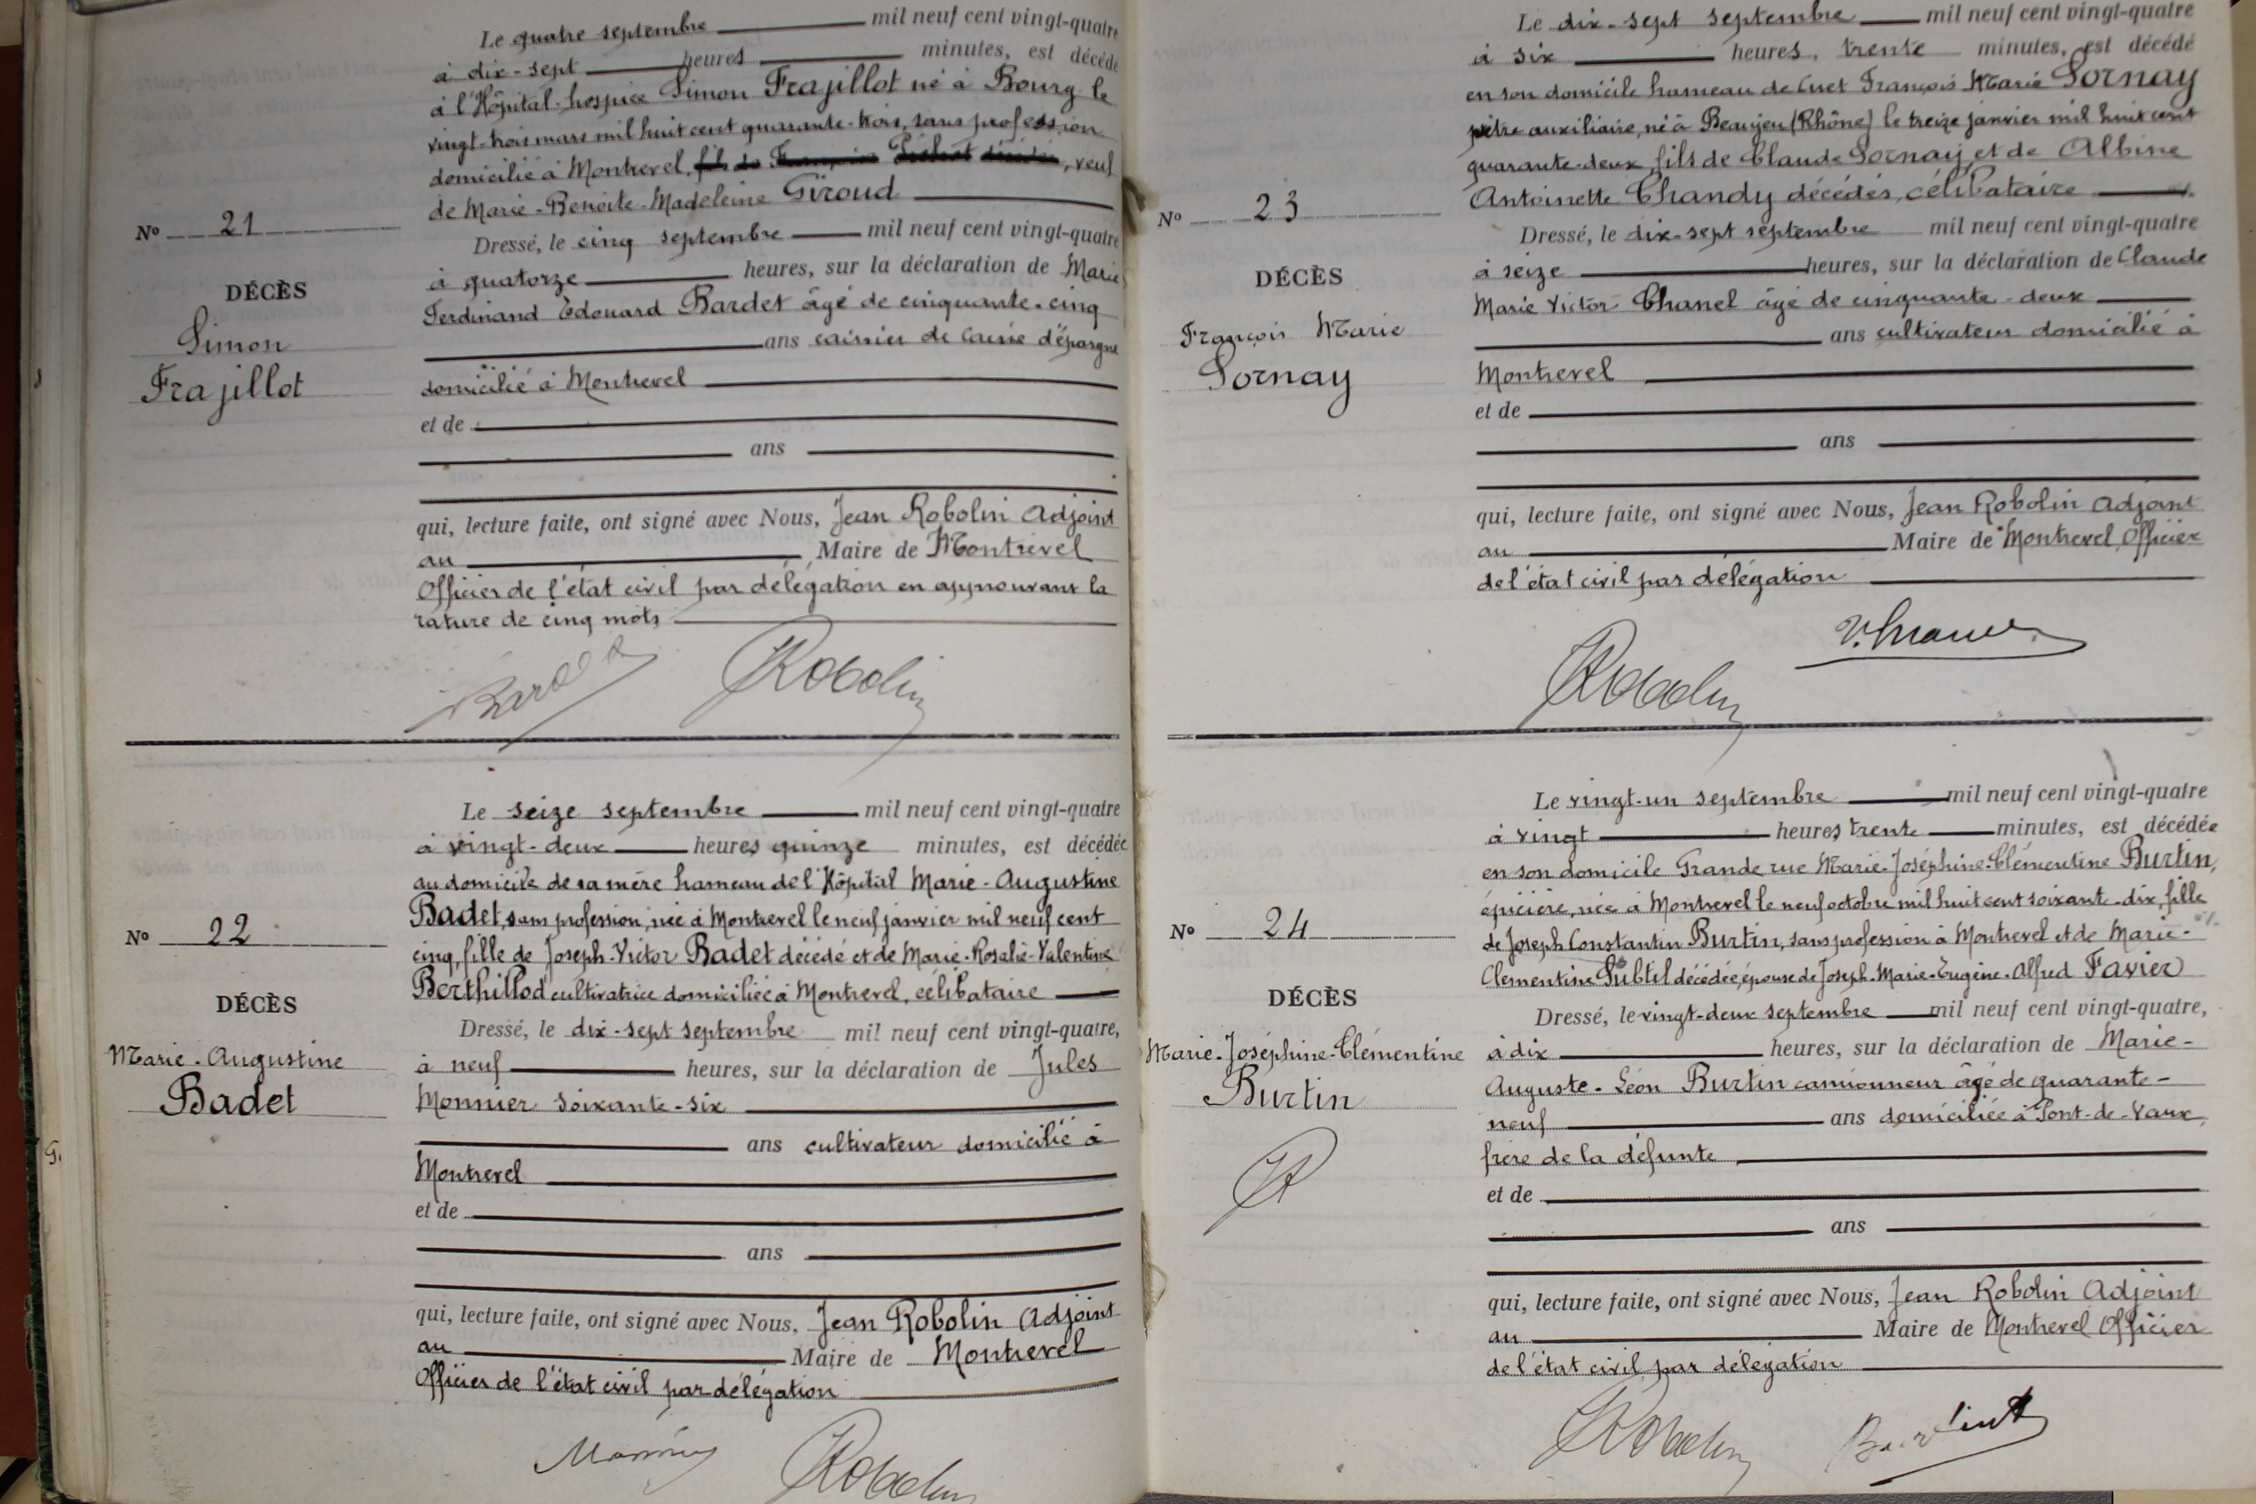 Le quatre septembre mil neuf cent vingt-quatre
à dix-sept heures minutes, est décédé
à l'Hôpital-hospice Simon Frajillot né à Bourg le
vingt-trois mars mil huit cent quarante-trois, sans profession
domicilié à Montrevel, veuf
de Marie-Benoite-Madeleine Giroud
No 21
Dressé, le cinq septembre mil neuf cent vingt-quatre
à quatorze heures, sur la déclaration de Marie
DÉCÈS
Ferdinand Edouard Bardet âgé de cinquante-cinq
Simon
ans caissier de Caisse d'épargne
Frajillot
domicilié à Montrevel
et de
ans
qui, lecture faite, ont signé avec Nous, Jean Robolin Adjoint
au Maire de Montrevel
Officier de l'état civil par délégation en approuvant la
rature de cinq mots
Bardet Robolin
Le seize septembre mil neuf cent vingt-quatre
à vingt-deux heures quinze minutes, est décédée
au domicile de sa mère hameau de l'Hôpital Marie-Augustine
Badet, sans profession, née à Montrevel le neuf janvier mil neuf cent
No 22
cinq, fille de Joseph-Victor Badet décédé et de Marie-Rosalie-Valentine
Berthillod cultivatrice domiciliée à Montrevel, célibataire
DÉCÈS
Dressé, le dix-sept septembre mil neuf cent vingt-quatre,
Marie-Augustine
à neuf heures, sur la déclaration de Jules
Badet
Monnier soixante-six
ans cultivateur domicilié à
Montrevel
et de
ans
qui, lecture faite, ont signé avec Nous, Jean Robolin Adjoint
au Maire de Montrevel
Officier de l'état civil par délégation
Monnier Robolin
Le dix-sept septembre mil neuf cent vingt-quatre
à six heures, trente minutes, est décédé
en son domicile hameau de Cuet François Marie Sornay
prêtre auxiliaire, né à Beaujeu (Rhône) le treize janvier mil huit cent
quarante-deux, fils de Claude Sornay et de Albine
Antoinette Chandy décédés, célibataire
No 23
Dressé, le dix-sept septembre mil neuf cent vingt-quatre
à seize heures, sur la déclaration de Claude
DÉCÈS
Marie Victor Chanel âgé de cinquante-deux
François Marie
ans cultivateur domicilié à
Sornay
Montrevel
et de
ans
qui, lecture faite, ont signé avec Nous, Jean Robolin Adjoint
au Maire de Montrevel Officier
de l'état civil par délégation
Robolin
Le vingt-un septembre mil neuf cent vingt-quatre
à vingt heures trente minutes, est décédée
en son domicile Grande rue Marie-Joséphine-Clémentine Burtin,
épicière, née à Montrevel le neuf octobre mil huit cent soixante-dix, fille
No 24
de Joseph Constantin Burtin, sans profession à Montrevel et de Marie-
Clementine Subtil décédée, épouse de Joseph-Marie-Eugène-Alfred Favier
DÉCÈS
Dressé, le vingt-deux septembre mil neuf cent vingt-quatre,
Marie-Joséphine-Clémentine
à dix heures, sur la déclaration de Marie-
Burtin
Auguste-Léon Burtin camionneur âgé de quarante-
neuf ans domiciliée à Pont-de-Vaux,
frère de la défunte
et de
ans
qui, lecture faite, ont signé avec Nous, Jean Robolin Adjoint
au Maire de Montrevel Officier
de l'état civil par délégation
Robolin Burtin